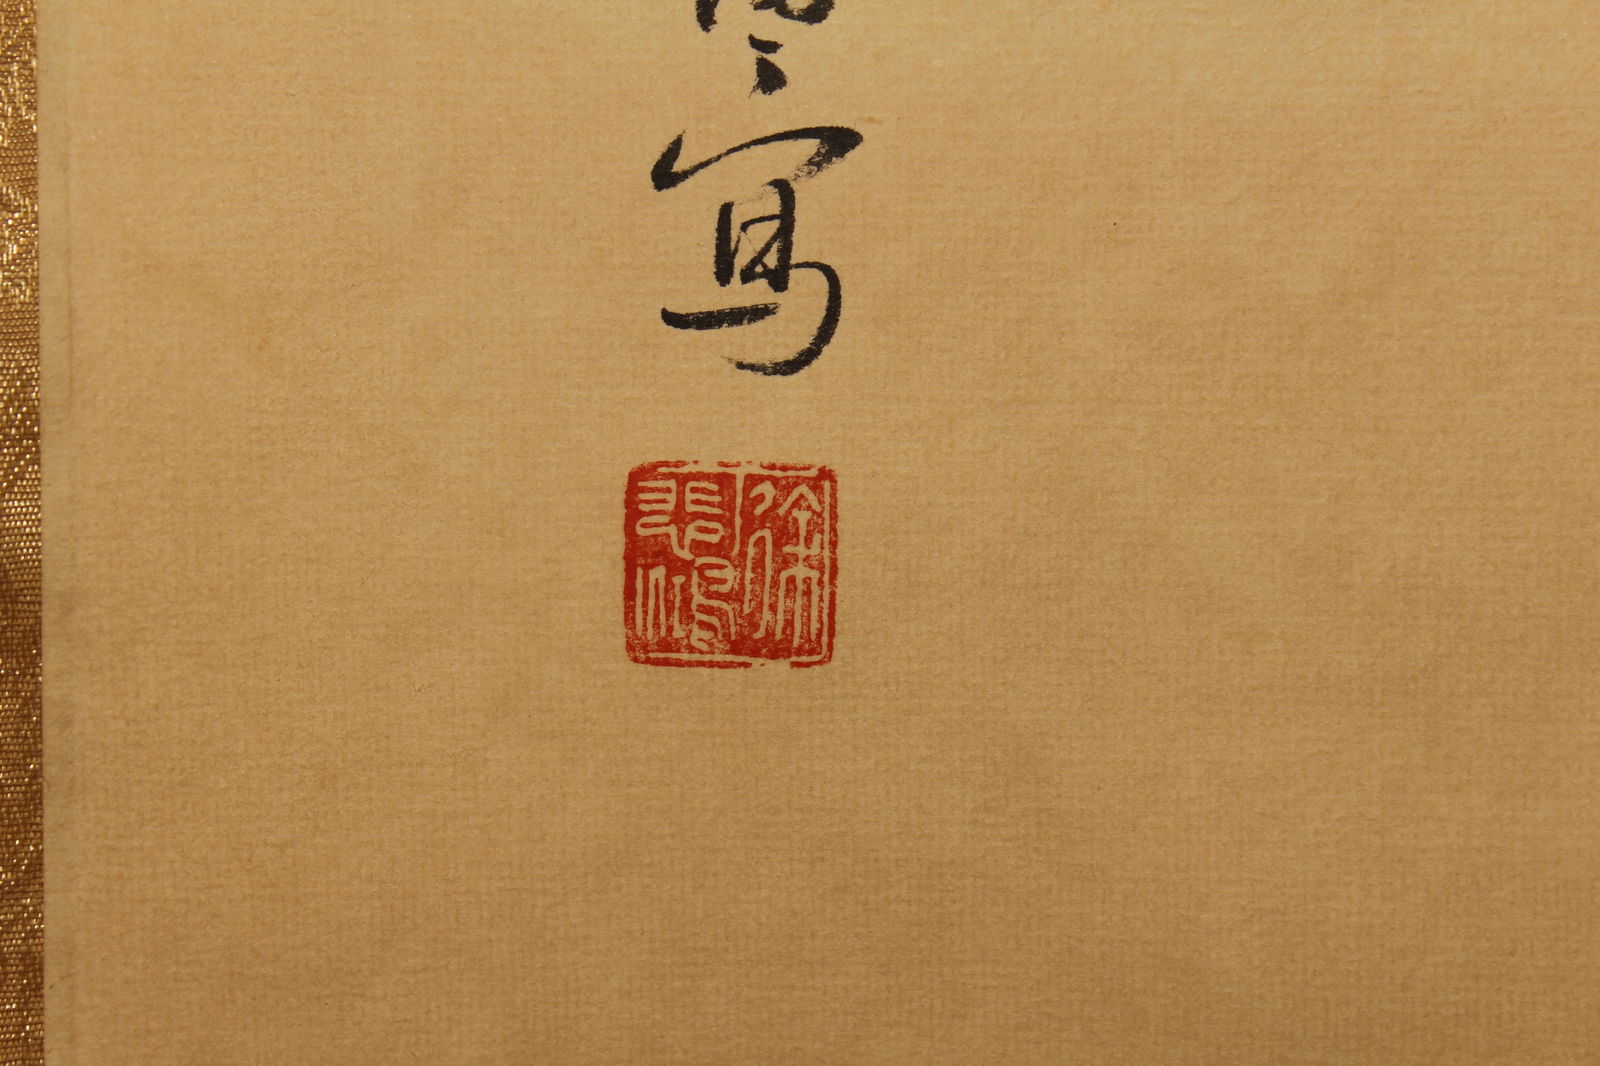 寫
徐
悲鴻